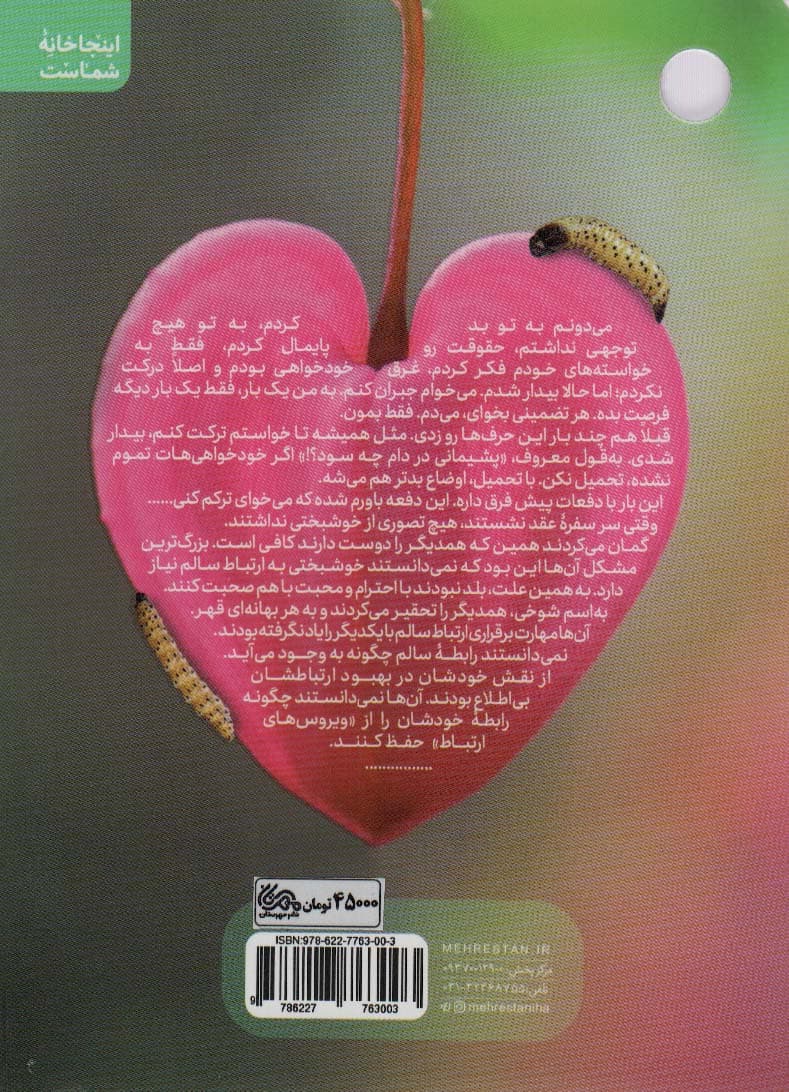 اینجا خانهٔ
شماست
می‌دونم به تو بد کردم، به تو هیچ
توجهی نداشتم، حقوقت رو پایمال کردم، فقط به
خواسته‌های خودم فکر کردم، غرق خودخواهی بودم و اصلاً درکت
نکردم؛ اما حالا بیدار شدم. می‌خوام جبران کنم. به من یک بار، فقط یک بار دیگه
فرصت بده. هر تضمینی بخوای، می‌دم. فقط بمون.
قبلاً هم چند بار این حرف‌ها رو زدی. مثل همیشه تا خواستم ترکت کنم، بیدار
شدی. به‌قول معروف، «پشیمانی در دام چه سود؟!» اگر خودخواهی‌هات تموم
نشده، تحمیل نکن. با تحمیل، اوضاع بدتر هم می‌شه.
این بار با دفعات پیش فرق داره. این دفعه باورم شده که می‌خوای ترکم کنی......
وقتی سر سفرهٔ عقد نشستند، هیچ تصوری از خوشبختی نداشتند.
گمان می‌کردند همین که همدیگر را دوست دارند کافی است. بزرگ‌ترین
مشکل آن‌ها این بود که نمی‌دانستند خوشبختی به ارتباط سالم نیاز
دارد. به همین علت، بلد نبودند با احترام و محبت با هم صحبت کنند.
به‌اسم شوخی، همدیگر را تحقیر می‌کردند و به هر بهانه‌ای قهر.
آن‌ها مهارت برقراری ارتباط سالم با یکدیگر را یاد نگرفته بودند.
نمی‌دانستند رابطهٔ سالم چگونه به وجود می‌آید.
از نقش خودشان در بهبود ارتباطشان
بی‌اطلاع بودند. آن‌ها نمی‌دانستند چگونه
رابطهٔ خودشان را از «ویروس‌های
ارتباط» حفظ کنند.
................
۴۵۰۰۰ تومان
ISBN:978-622-7763-00-3
9 786227 763003
MEHRESTAN.IR
مرکز پخش: ۰۹۳۷۰۰۱۲۹۰۰
تلفن: ۰۳۱-۳۲۳۶۸۷۵۵
mehrestaniha